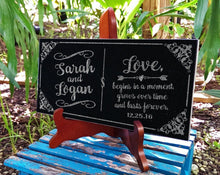 Sarah
and
Logan
Love,
begins in a moment,
grows over time
and lasts forever.
12.25.16